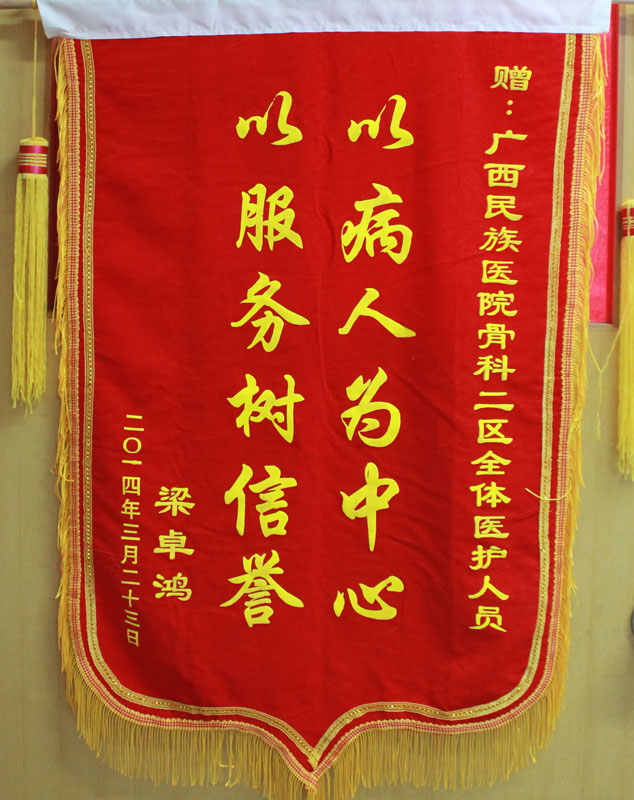 赠：广西民族医院骨科二区全体医护人员
以病人为中心
以服务树信誉
梁卓鸿
二〇一四年三月二十三日